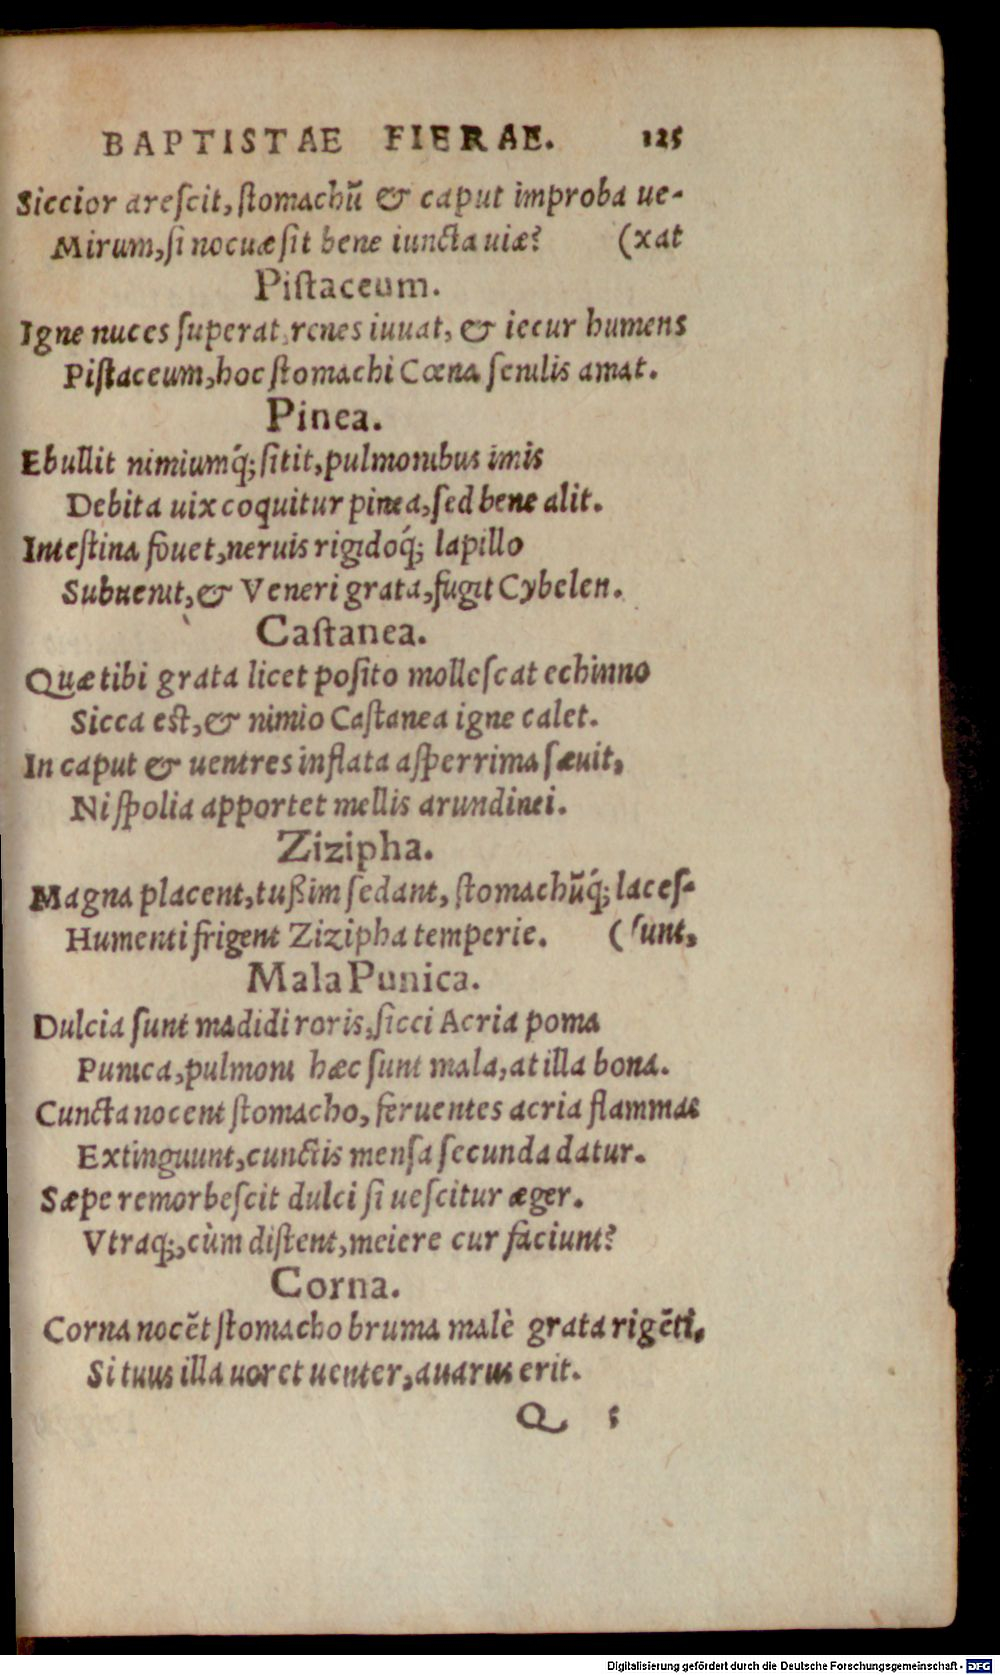 BAPTISTAE FIERAE. 125
Siccior arescit, stomachũ & caput improba ue-
Mirum, si nocuæ sit bene iuncta uiæ? (xat
Pistaceum.
Igne nuces superat, renes iuuat, & iecur humens
Pistaceum, hoc stomachi Cœna senilis amat.
Pinea.
Ebullit nimiumq́; sitit, pulmonibus imis
Debita uix coquitur pinea, sed bene alit.
Intestina fouet, neruis rigidoq́; lapillo
Subuenit, & Veneri grata, fugit Cybelen.
Castanea.
Quæ tibi grata licet posito mollescat echinno
Sicca est, & nimio Castanea igne calet.
In caput & uentres inflata asperrima sæuit,
Ni spolia apportet mellis arundinei.
Zizipha.
Magna placent, tußim sedant, stomachũq́; laces-
Humenti frigent Zizipha temperie. (sunt,
Mala Punica.
Dulcia sunt madidi roris, sicci Acria poma
Punica, pulmoni hæc sunt mala, at illa bona.
Cuncta nocent stomacho, feruentes acria flammas
Extinguunt, cunctis mensa secunda datur.
Sæpe remorbescit dulci si uescitur æger.
Vtraq;, cùm distent, meiere cur faciunt?
Corna.
Corna nocẽt stomacho bruma malè grata rigẽti,
Si tuus illa uoret uenter, auarus erit.
Q 5
Digitalisierung gefördert durch die Deutsche Forschungsgemeinschaft - DFG